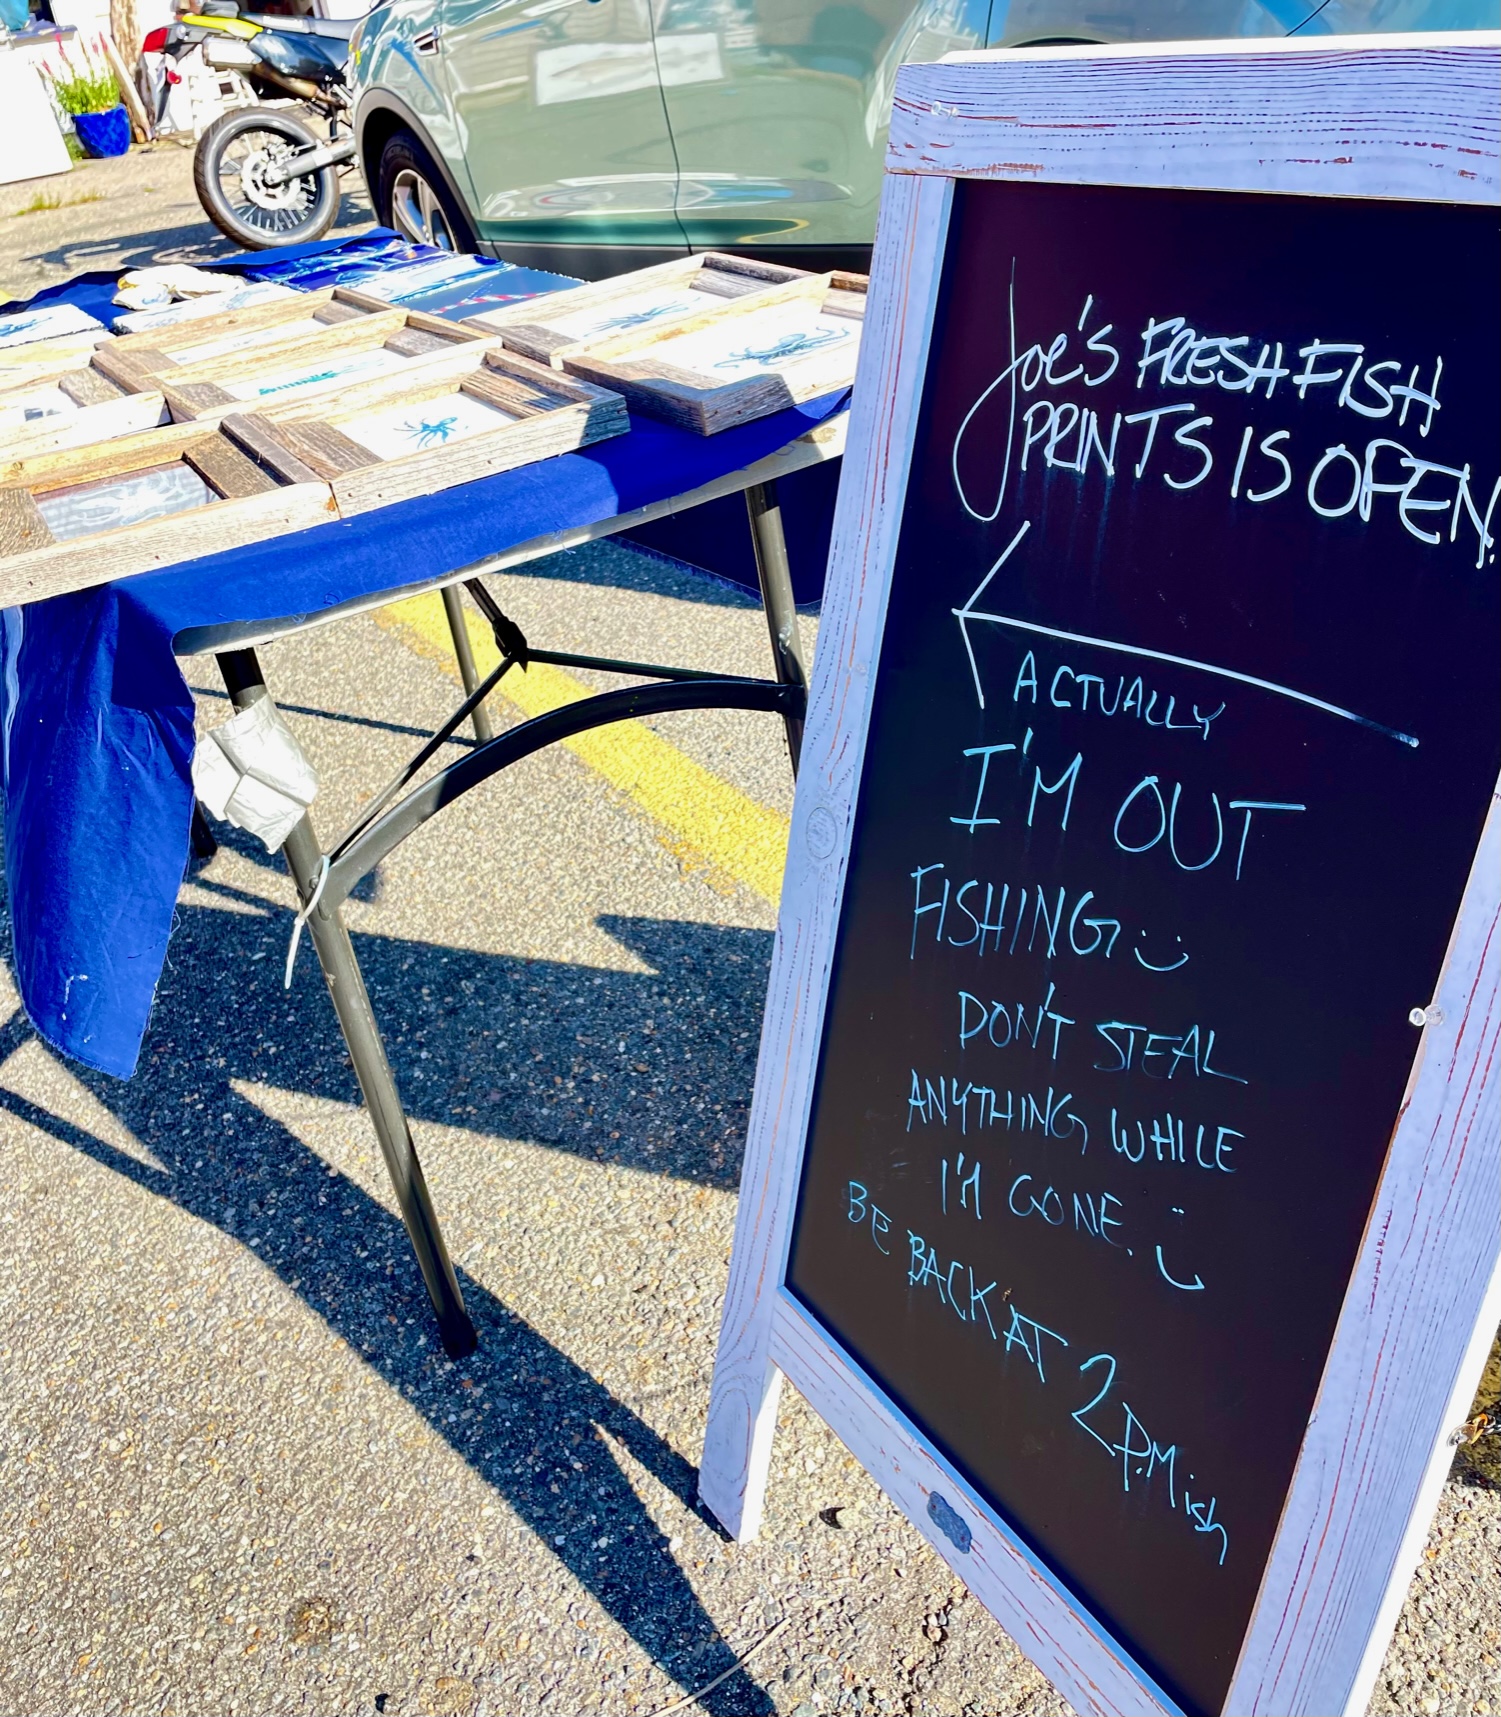 Joe's FRESH FISH
PRINTS IS OPEN.
ACTUALLY
I'M OUT
FISHING
DON'T STEAL
ANYTHING WHILE
I'M GONE.
BE BACK AT 2 P.M ish